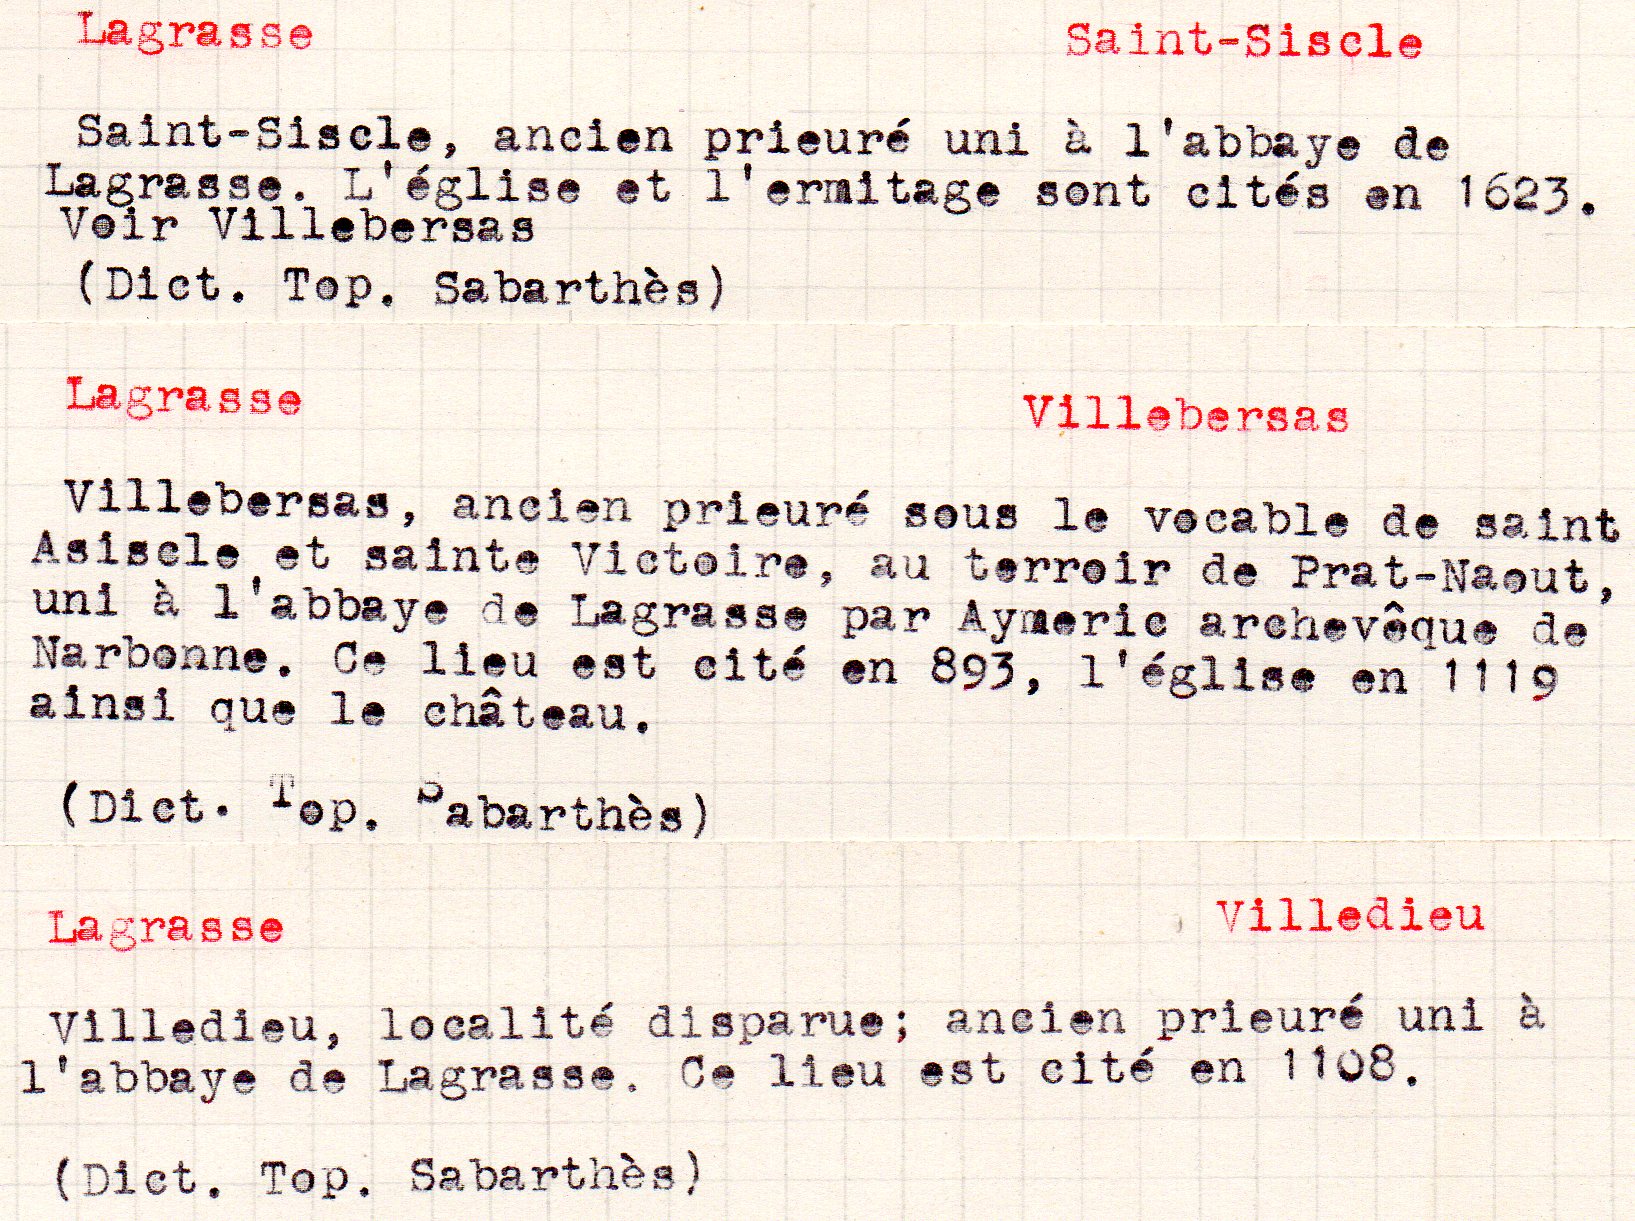 Lagrasse Saint-Siscle
Saint-Siscle, ancien prieuré uni à l'abbaye de
Lagrasse. L'église et l'ermitage sont cités en 1623.
Voir Villebersas
(Dict. Top. Sabarthès)
Lagrasse Villebersas
Villebersas, ancien prieuré sous le vocable de saint
Asiscle et sainte Victoire, au terroir de Prat-Naout,
uni à l'abbaye de Lagrasse par Aymeric archevêque de
Narbonne. Ce lieu est cité en 893, l'église en 1119
ainsi que le château.
(Dict. Top. Sabarthès)
Lagrasse Villedieu
Villedieu, localité disparue; ancien prieuré uni à
l'abbaye de Lagrasse. Ce lieu est cité en 1108.
(Dict. Top. Sabarthès)